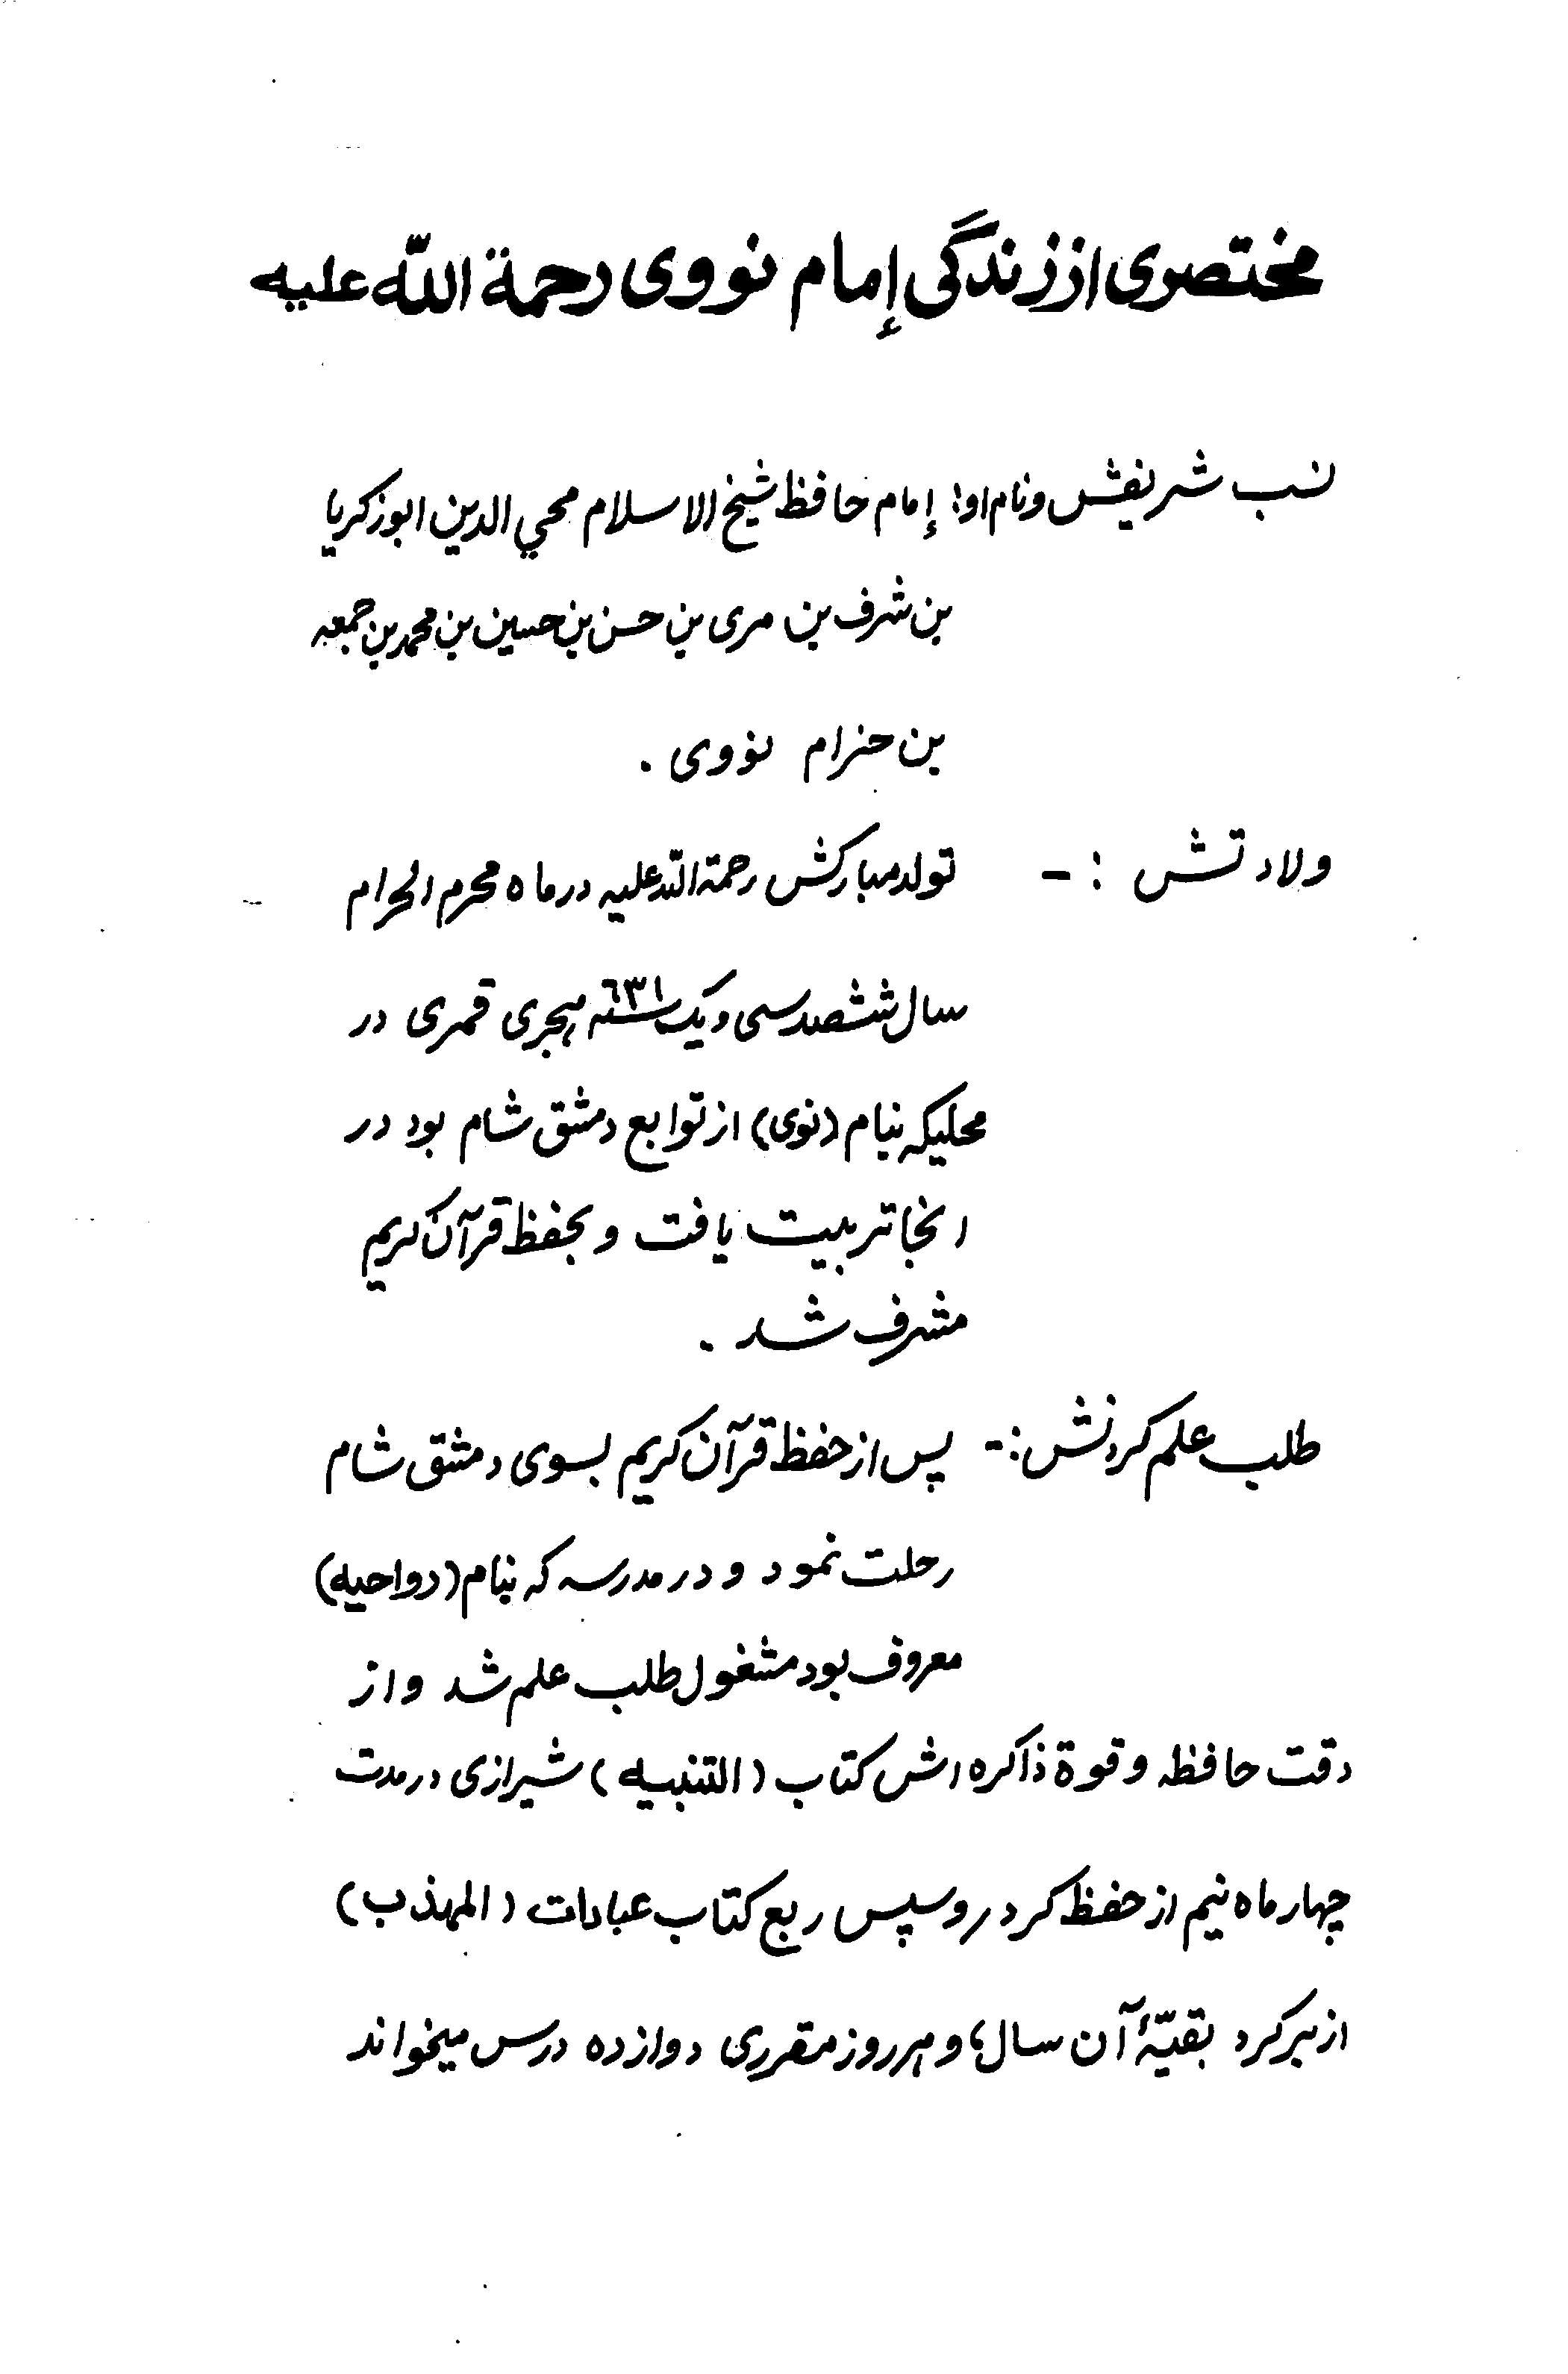 مختصری از زندگی إمام نووی رحمة اللّه علیه
نسب شریفش ونام او: إمام حافظ شیخ الاسلام محیي الدین ابوزکریا
بن شرف بن مری بن حسن بن حسین بن محمد بن جمعه
بن حزام نووی .
ولادتش : - تولد مبارکش رحمة اللّه علیه در ماه محرم الحرام
سال ششصد سی و یک ٦٣١ سنه هجری قمری در
محلیکه بنام (نوی) از توابع دمشق شام بود در
انجا تربیت یافت و بحفظ قرآن کریم
مشرف شد .
طلب علم کردنش :- پس از حفظ قرآن کریم بسوی دمشق شام
رحلت نمود و در مدرسه که بنام (دواحیه)
معروف بود مشغول طلب علم شد و از
دقت حافظه و قوة ذاکره اش کتاب (التنبیه) شیرازی در مدت
چهار ماه نیم از حفظ کرد و سپس ربع کتاب عبادات (المهذب)
از بر کرد بقیّۀ آن سال؛ و هر روز مقرری دوازده درس میخواند